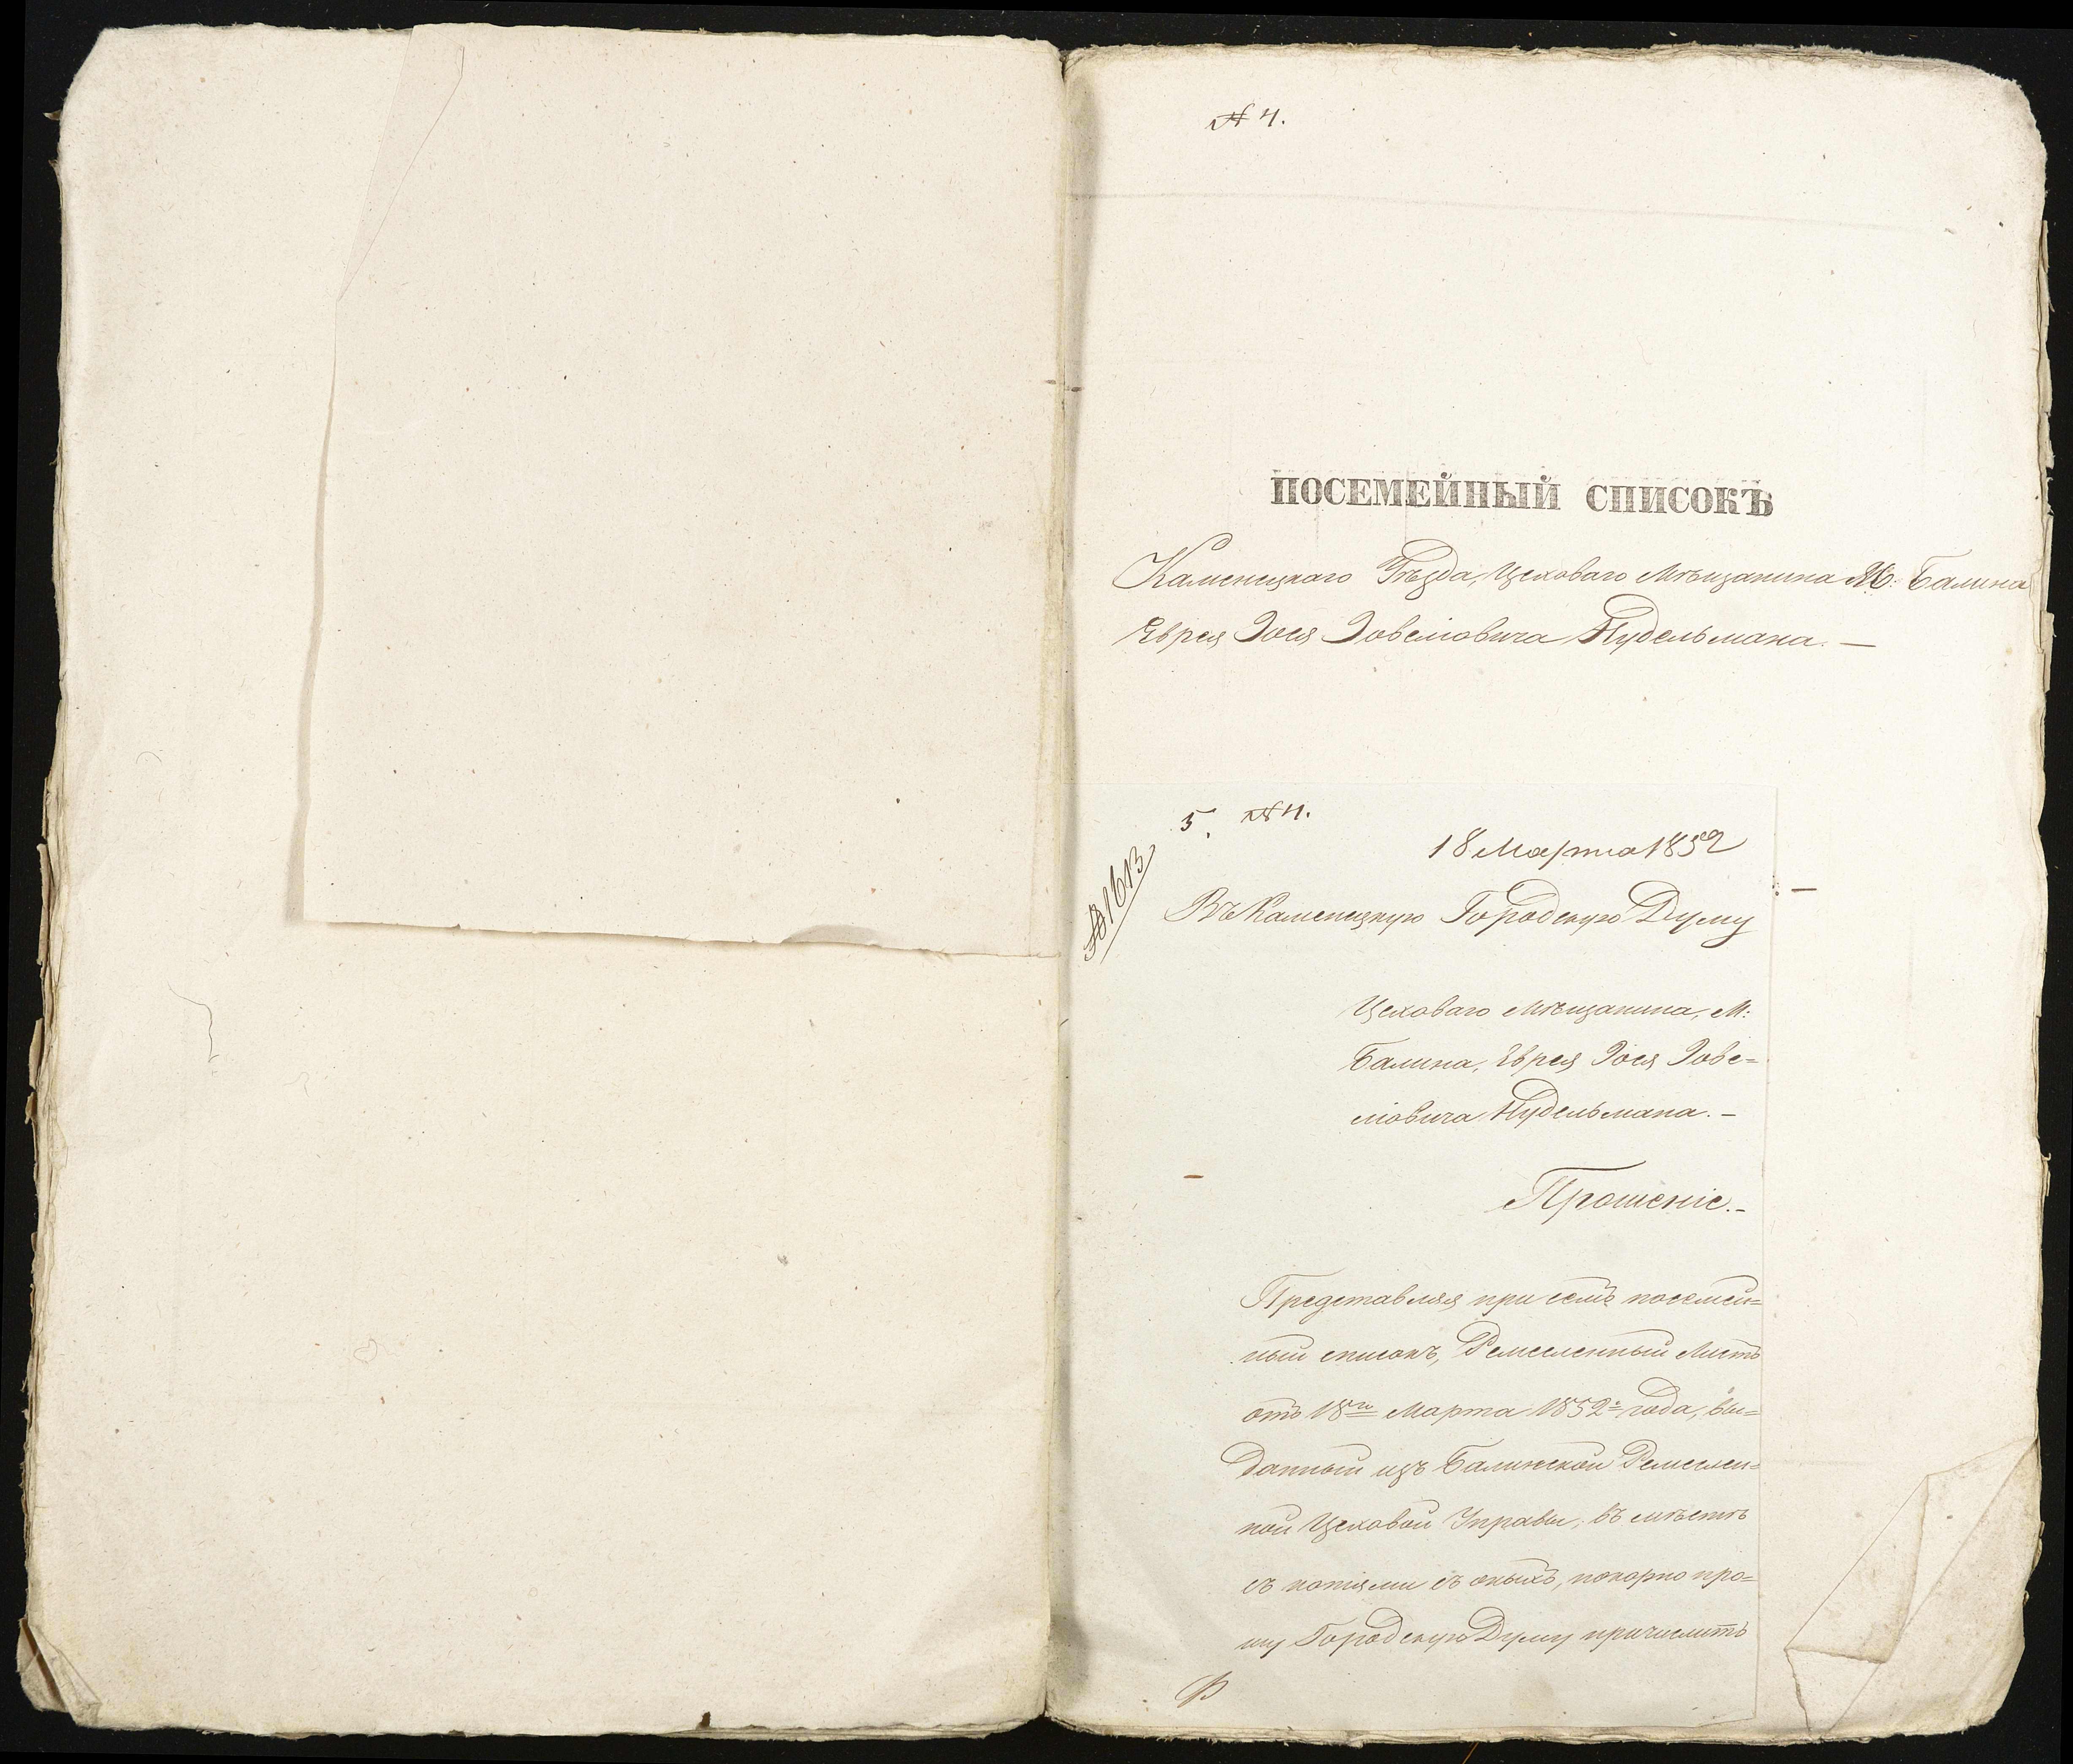 № 4.
ПОСЕМЕЙНЫЙ СПИСОКЪ
Каменецкаго Уѣзда, Цеховаго Мѣщанина М: Балина
Еврея Іося Іовелiовича Нудельмана. —
5. № 4.
18 Марта 1852
№ 1613
Въ Каменецкую Городскую Думу
Цеховаго Мѣщанина, М:
Балина, Еврея Іося Іове=
лiовича Нудельмана. —
Прошеніе. —
Представляя при семъ посемей=
ный списокъ, Ремесленный Листъ
отъ 18го Марта 1852 года, вы=
данный изъ Балинской Ремеслен=
ной Цеховой Управы, въ мѣстѣ
съ копіями съ оныхъ, покорно про=
шу Городскую Думу причислить